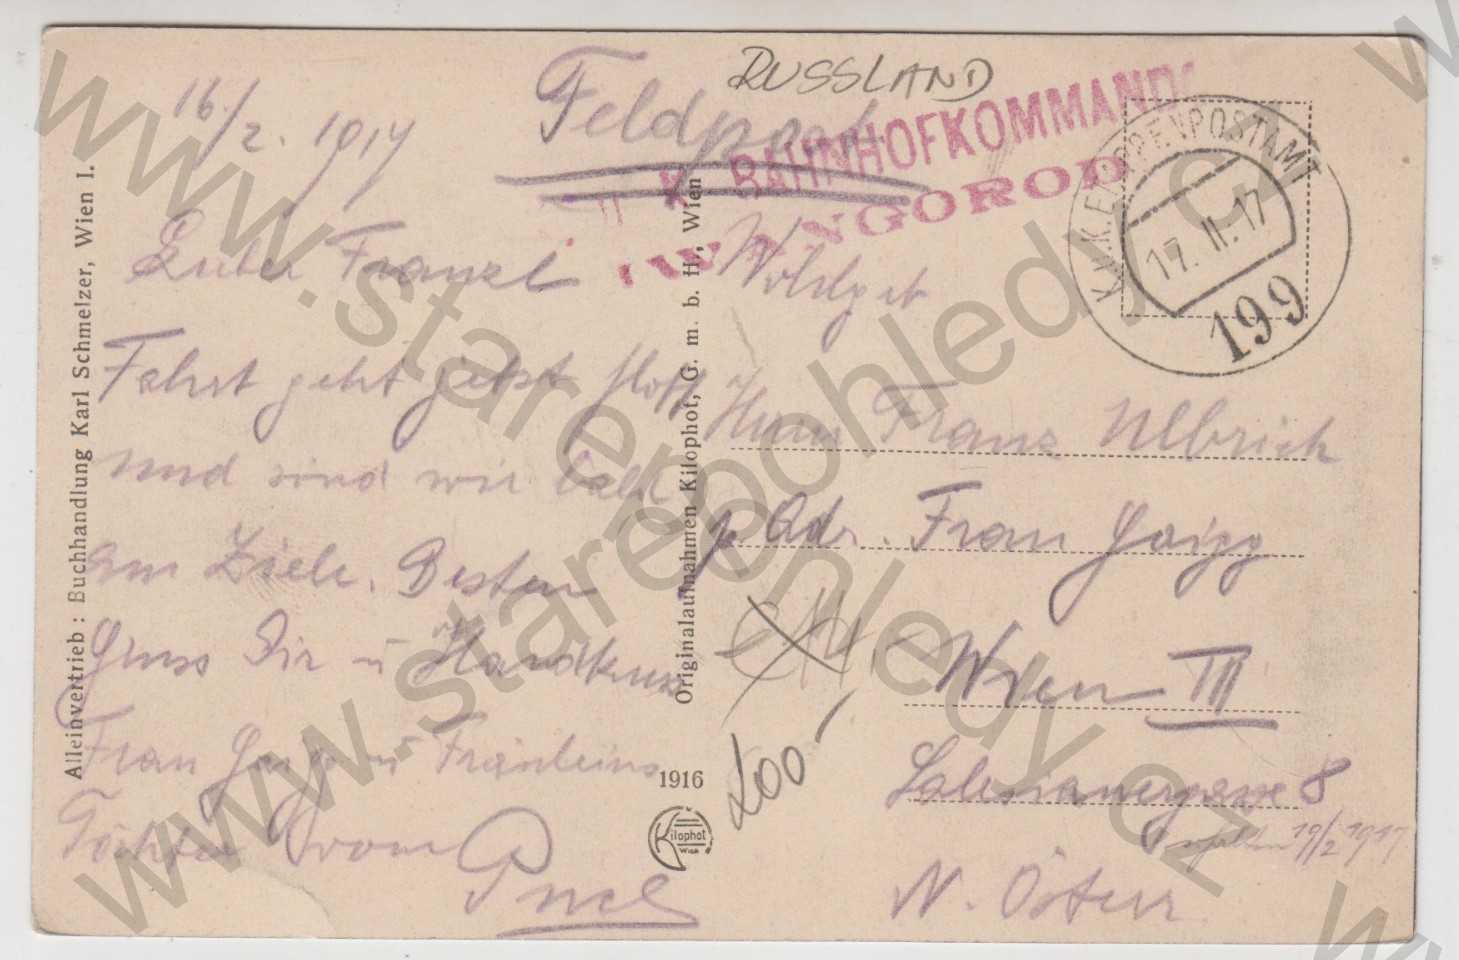 RUSSLAND
16/2. 1917
Feldpost
K. BAHNHOFKOMMANDO
IWANGOROD
K.u.K. ETAPPENPOSTAMT
17. II. 17
199
Lieber Franzl
Fahrt geht jetzt flott
und sind wir bald
am Ziele. Besten
Gruss Dir u Handkuss
Frau Gaigg u Fräuleins
Töchter vom
Alleinvertrieb: Buchhandlung Karl Schmelzer, Wien I.
Originalaufnahmen Kilophot, G. m. b. H., Wien
1916
Kilophot
Wien
Wohlgeb
Herrn Franz Ulbrich
p. Adr. Frau Gaigg
Wien III
Salesianergasse 8
erhalten 19/2 1917
N. Österr
200-
www.starepohledy.cz
www.starepohledy.cz